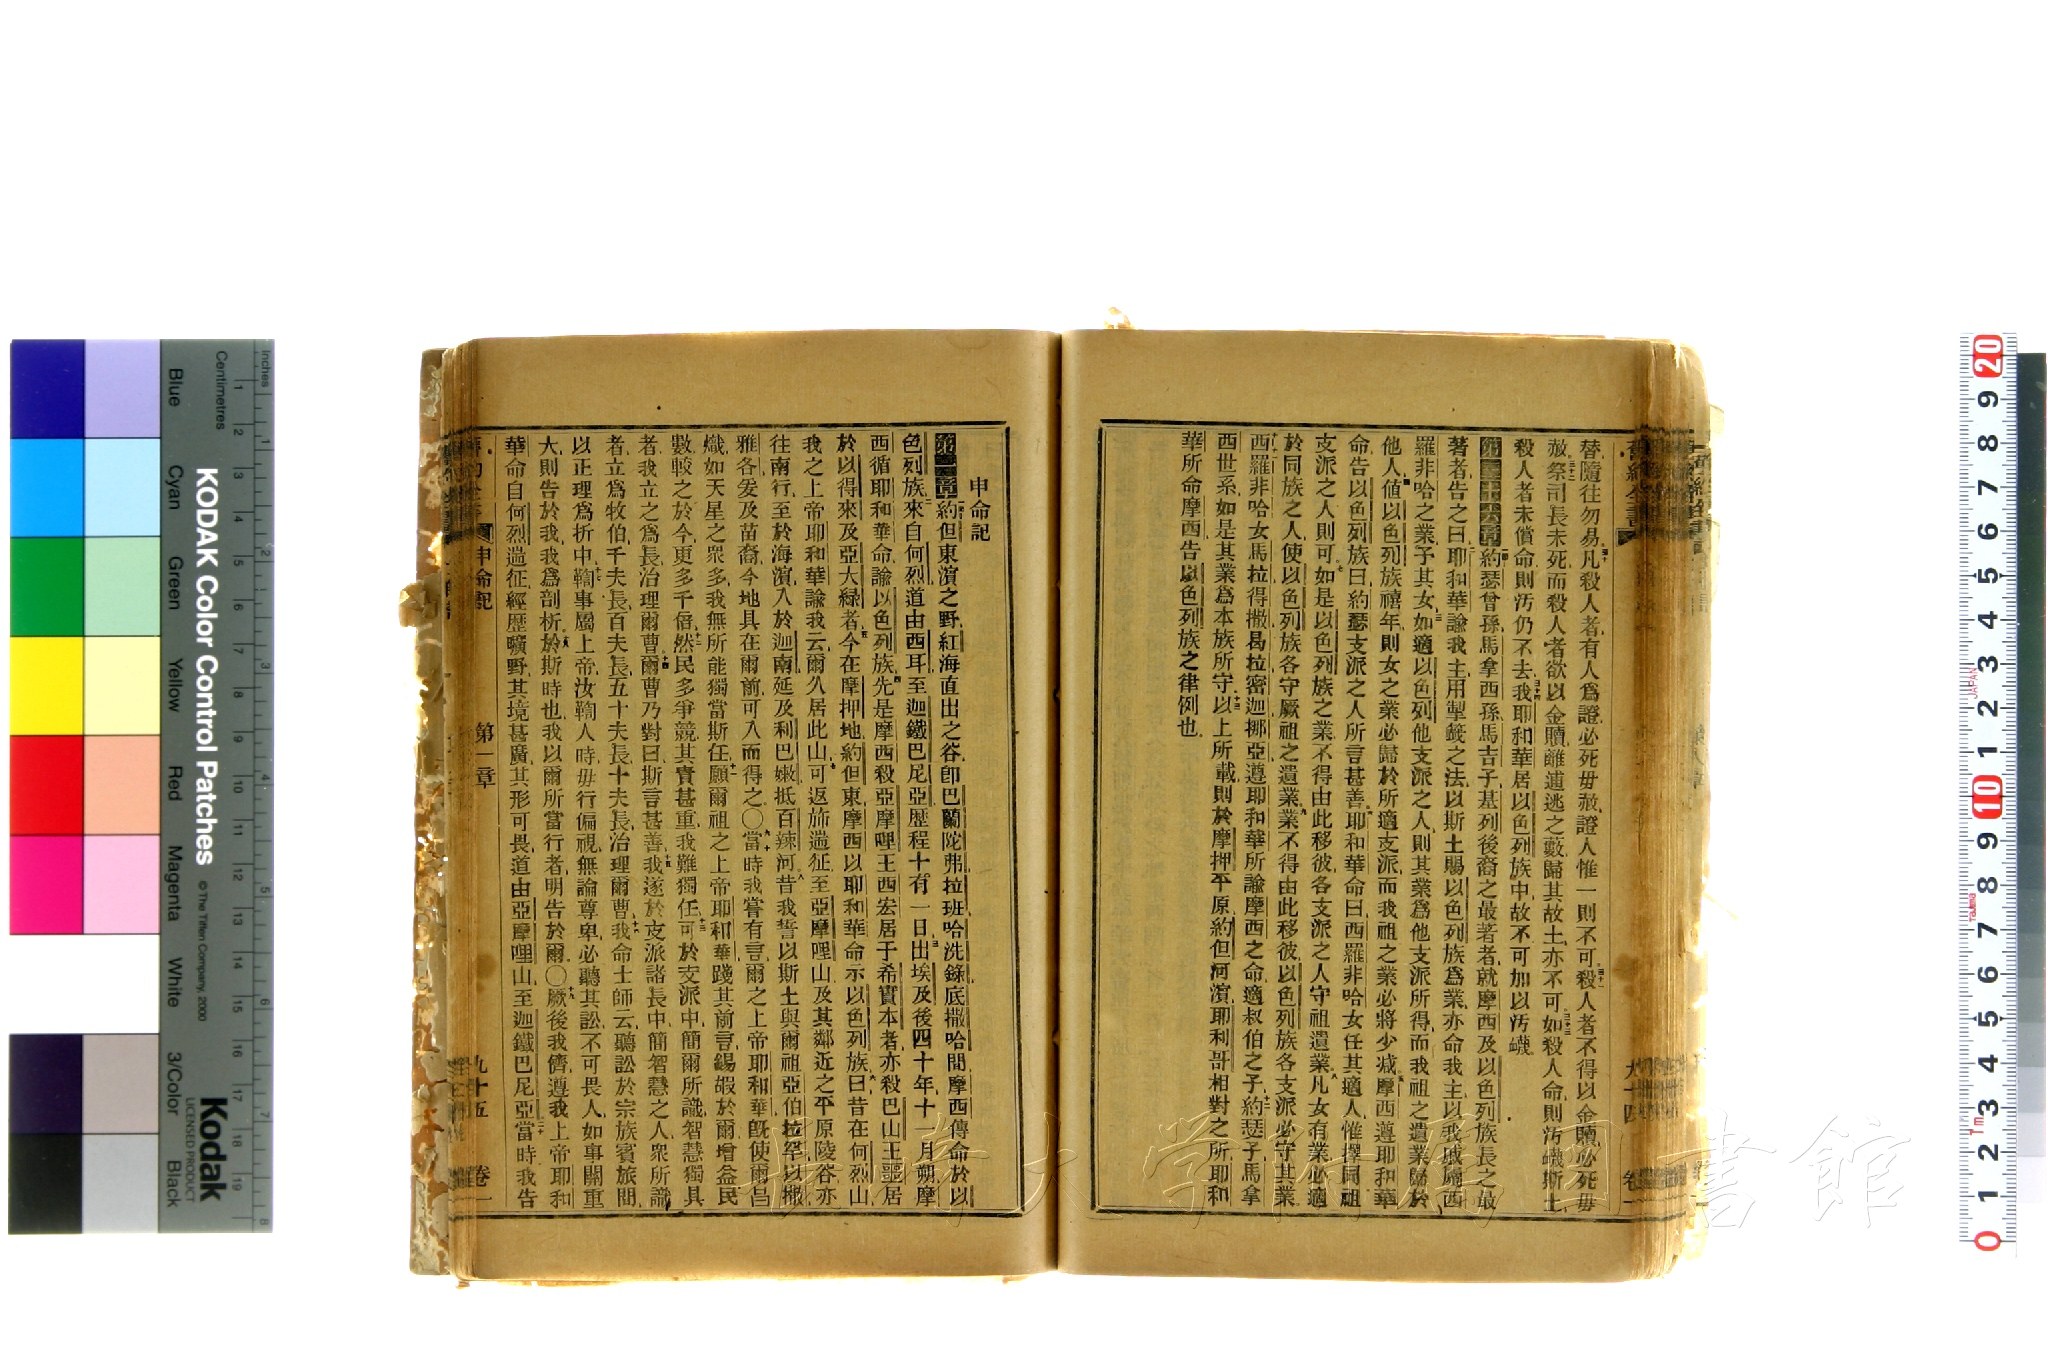 替隨往勿易凡殺人者有人爲證必死毋赦證人惟一則不可殺人者不得以金贖必死毋
赦祭司長未死而殺人者欲以金贖離遁逃之藪歸其故土亦不可如殺人命則汚衊斯土
殺人者未償命則汚仍不去我耶和華居以色列族中故不可加以汚衊
第三十六章約瑟曾孫馬拿西孫馬吉子基列後裔之最著者就摩西及以色列族長之最
著者告之曰耶和華諭我主用掣籤之法以斯土賜以色列族爲業亦命我主以我戚屬西
羅非哈之業予其女如適以色列他支派之人則其業爲他支派所得而我祖之遺業歸於
他人値以色列族禧年則女之業必歸於所適支派而我祖之業必將少減摩西遵耶和華
命告以色列族曰約瑟支派之人所言甚善耶和華命曰西羅非哈女任其適人惟擇同祖
支派之人則可如是以色列族之業不得由此移彼各支派之人守祖遺業凡女有業必適
於同族之人使以色列族各守厥祖之遺業業不得由此移彼以色列族各支派必守其業
西羅非哈女馬拉得撒曷拉密迦挪亞遵耶和華所諭摩西之命適叔伯之子約瑟子馬拿
西世系如是其業爲本族所守以上所載則於摩押平原約但河濱耶利哥相對之所耶和
華所命摩西告以色列族之律例也
九十四
卷一
申命記
第一章約但東濱之野紅海直出之谷卽巴蘭陀弗拉班哈洗錄底撒哈間摩西傳命於以
色列族來自何烈道由西耳至迦鐵巴尼亞歷程十有一日出埃及後四十年十一月朔摩
西循耶和華命諭以色列族先是摩西殺亞摩哩王西宏居于希實本者亦殺巴山王噩居
於以得來及亞大綠者今在摩押地約但東摩西以耶和華命示以色列族曰昔在何烈山
我之上帝耶和華諭我云爾久居此山可返旆遄征至亞摩哩山及其鄰近之平原陵谷亦
往南行至於海濱入於迦南延及利巴嫩抵百辣河昔我誓以斯土與爾祖亞伯拉罕以撒
雅各爰及苗裔今地具在爾前可入而得之〇當時我嘗有言爾之上帝耶和華旣使爾昌
熾如天星之衆多我無所能獨當斯任願爾祖之上帝耶和華踐其前言錫嘏於爾增益民
數較之於今更多千倍然民多爭競其責甚重我難獨任可於支派中簡爾所識智慧獨具
者我立之爲長治理爾曹爾曹乃對曰斯言甚善我遂於支派諸長中簡智慧之人衆所識
者立爲牧伯千夫長百夫長五十夫長十夫長治理爾曹我命士師云聽訟於宗族賓旅間
以正理爲折中鞫事屬上帝汝鞫人時毋行偏視無論尊卑必聽其訟不可畏人如事關重
大則告於我我爲剖析於斯時也我以爾所當行者明告於爾〇厥後我儕遵我上帝耶和
華命自何烈遄征經歷曠野其境甚廣其形可畏道由亞摩哩山至迦鐵巴尼亞當時我告
申命記
第一章
九十五
卷一
KODAK Color Control Patches
© The Tiffen Company, 2000
Kodak
LICENSED PRODUCT
Inches
Centimetres
Blue
Cyan
Green
Yellow
Red
Magenta
White
3/Color
Black